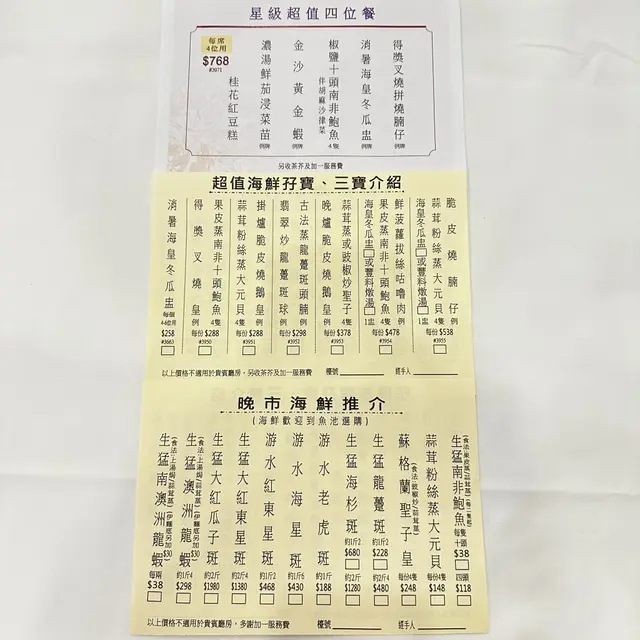 星級超值四位餐
得獎叉燒拼燒腩仔 例牌
消暑海皇冬瓜盅 例牌
椒鹽十頭南非鮑魚 4隻
伴胡麻沙律菜
金沙黃金蝦 例牌
濃湯鮮茄浸菜苗 例牌
桂花紅豆糕
每席
4位用
$768
#3971
另收茶芥及加一服務費
超值海鮮孖寶、三寶介紹
脆皮燒腩仔 例
蒜茸粉絲蒸大元貝 4隻
海皇冬瓜盅 或豐料燉湯 1盅
每份 $538
#3955
鮮菠蘿拔絲咕嚕肉 例
果皮蒸南非十頭鮑魚 4隻
海皇冬瓜盅 或豐料燉湯 1盅
每份 $478
#3954
蒜茸蒸或豉椒炒聖子 4隻
晚爐脆皮燒鵝皇 例
每份 $378
#3953
古法蒸龍躉斑頭腩 例
翡翠炒龍躉斑球 例
每份 $298
#3952
掛爐脆皮燒鵝皇 例
蒜茸粉絲蒸大元貝 4隻
每份 $288
#3951
果皮蒸南非十頭鮑魚 4隻
得獎叉燒皇 例
每份 $288
#3950
消暑海皇冬瓜盅 每個
4-6位用
$258
#3663
以上價格不適用於貴賓廳房，另收茶芥及加一服務費 檯號 經手人
晚市海鮮推介
(海鮮歡迎到魚池選購)
生猛南非鮑魚
每隻
十頭
$38
四頭
$118
蒜茸粉絲蒸大元貝 每份4隻
$148
蘇格蘭聖子皇 每份4隻
$248
生猛龍躉斑
約1斤2
$228
約2斤
$480
生猛海杉斑
約1斤2
$680
約2斤
$1280
游水老虎斑 約1斤
$188
游水海星斑 約1斤
$430
游水紅東星斑 約1斤2
$468
生猛大紅東星斑 約2斤
$1380
生猛大紅瓜子斑 約2斤
$1980
生猛澳洲龍蝦 約1斤4
$298
生猛南澳洲龍蝦 每兩
$38
以上價格不適用於貴賓廳房，多謝加一服務費 檯號 經手人